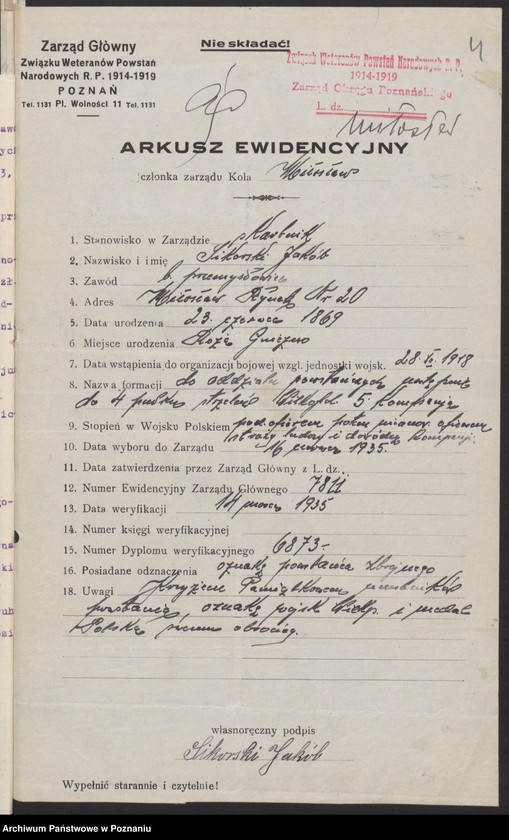 Zarząd Główny
Związku Weteranów Powstań
Narodowych R. P. 1914-1919
POZNAŃ
Tel. 1131 Pl. Wolności 11 Tel. 1131
Nie składać!
4
Związek Weteranów Powstań Narodowych R. P.
1914-1919
Zarząd Okręgu Poznańskiego
L. dz.
Miłosław
ARKUSZ EWIDENCYJNY
członka zarządu Koła Miłosław
1. Stanowisko w Zarządzie skarbnik
2. Nazwisko i imię Sikorski Jakób
3. Zawód b. przemysłowiec
4. Adres Miłosław Rynek Nr 20
5. Data urodzenia 23 czerwca 1869
6 Miejsce urodzenia Gniezno
7. Data wstąpienia do organizacji bojowej wzgl. jednostki wojsk. 1918
8. Nazwa formacji do oddziału powstańczych
do 4 pułku strzelców 5 Kompanja
9. Stopień w Wojsku Polskiem pod.oficerem potem mianow. oficerem
straży ludowej i dowódcą kompanji
10. Data wyboru do Zarządu 16 1935.
11. Data zatwierdzenia przez Zarząd Główny z L. dz.
12. Numer Ewidencyjny Zarządu Głównego 7811
13. Data weryfikacji 14 marca 1935
14. Numer księgi weryfikacyjnej
15. Numer Dyplomu weryfikacyjnego 6873-
16. Posiadane odznaczenia oznakę powstańca zbrojnego
18. Uwagi Krzyżem Pamiątkowem
powstania, oznakę wojsk Wielkp. i medal
Polska swemu obrońcy.
własnoręczny podpis
Sikorski Jakób
Wypełnić starannie i czytelnie!
Archiwum Państwowe w Poznaniu